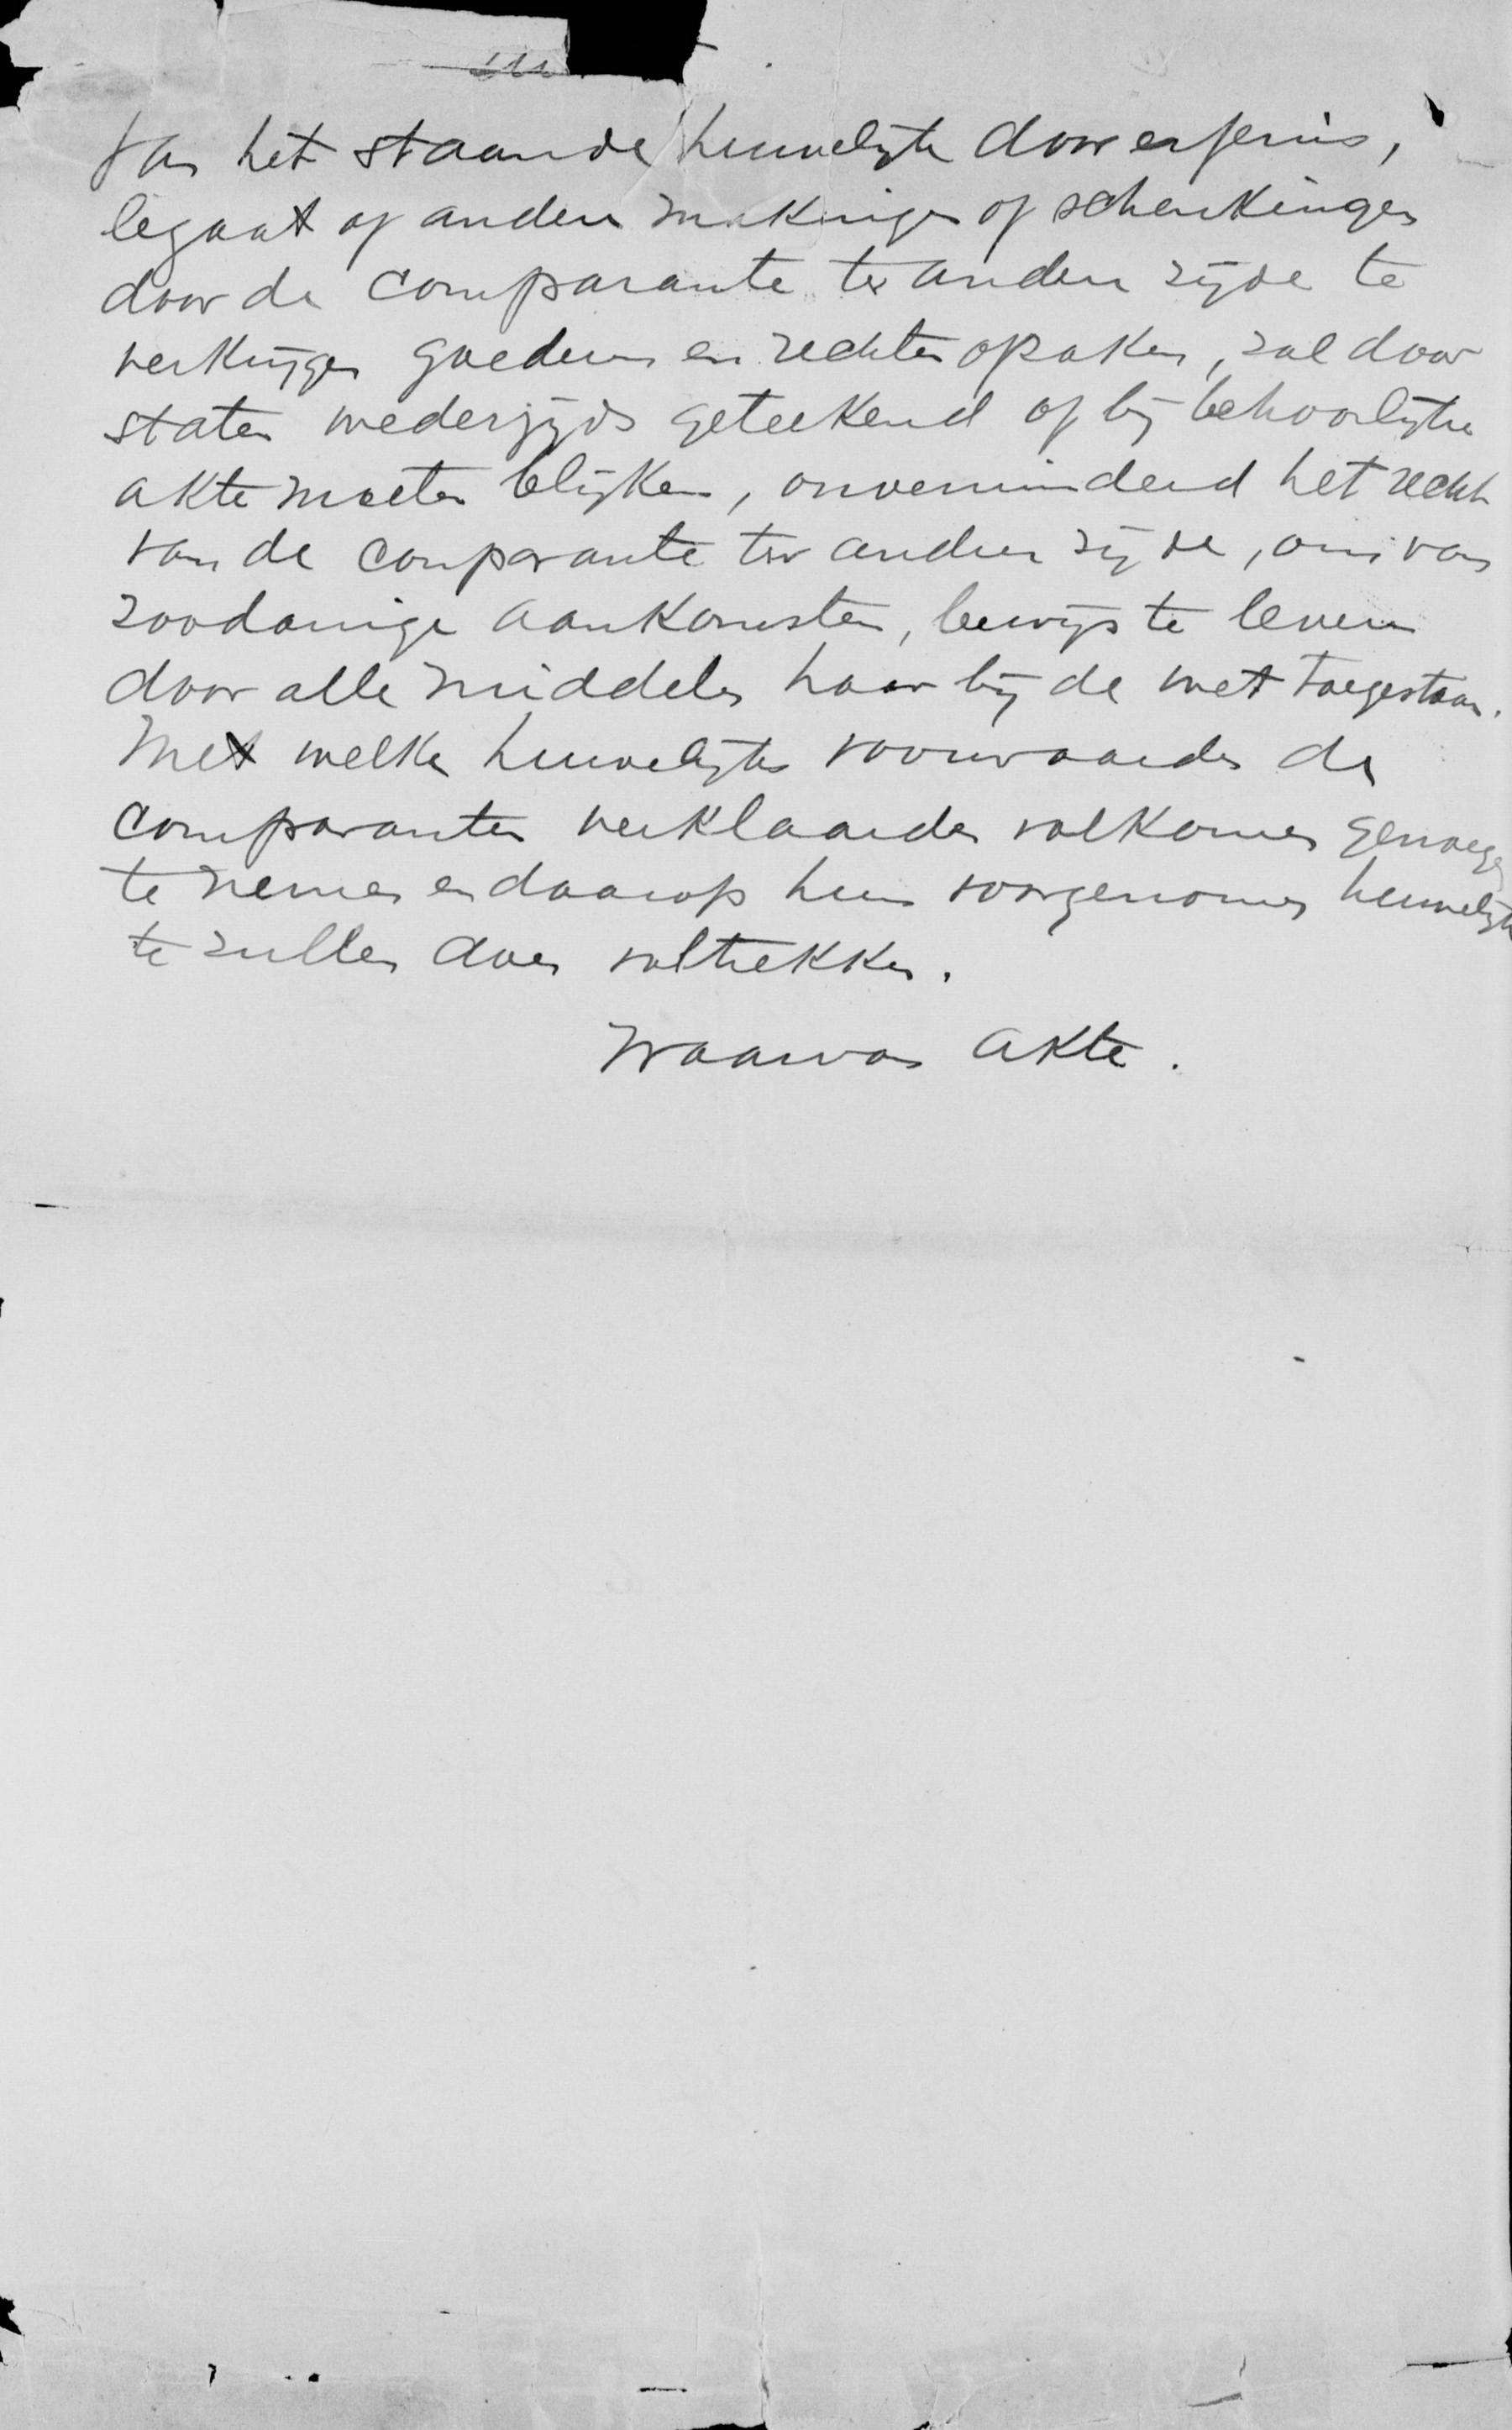 van het staande huwelijk door erfenis,
legaat of andere makingen of schenkingen
door de comparante ter andere zijde te
verkrijgen goederen en rechten of zaken, zal door
staten wederzijds geteekend of bij behoorlijke
akte moeten blijken, onverminderd het recht
van de comparante ter andere zijde, om van
zoodanige aankomsten, bewijs te leveren
door alle middelen haar bij de wet toegestaan.
Met welke huwelijks voorwaarden de
comparanten verklaarden volkomen genoegen
te nemen en daarop hun voorgenomen huwelijk
te zullen doen voltrekken.
Waarvan akte.